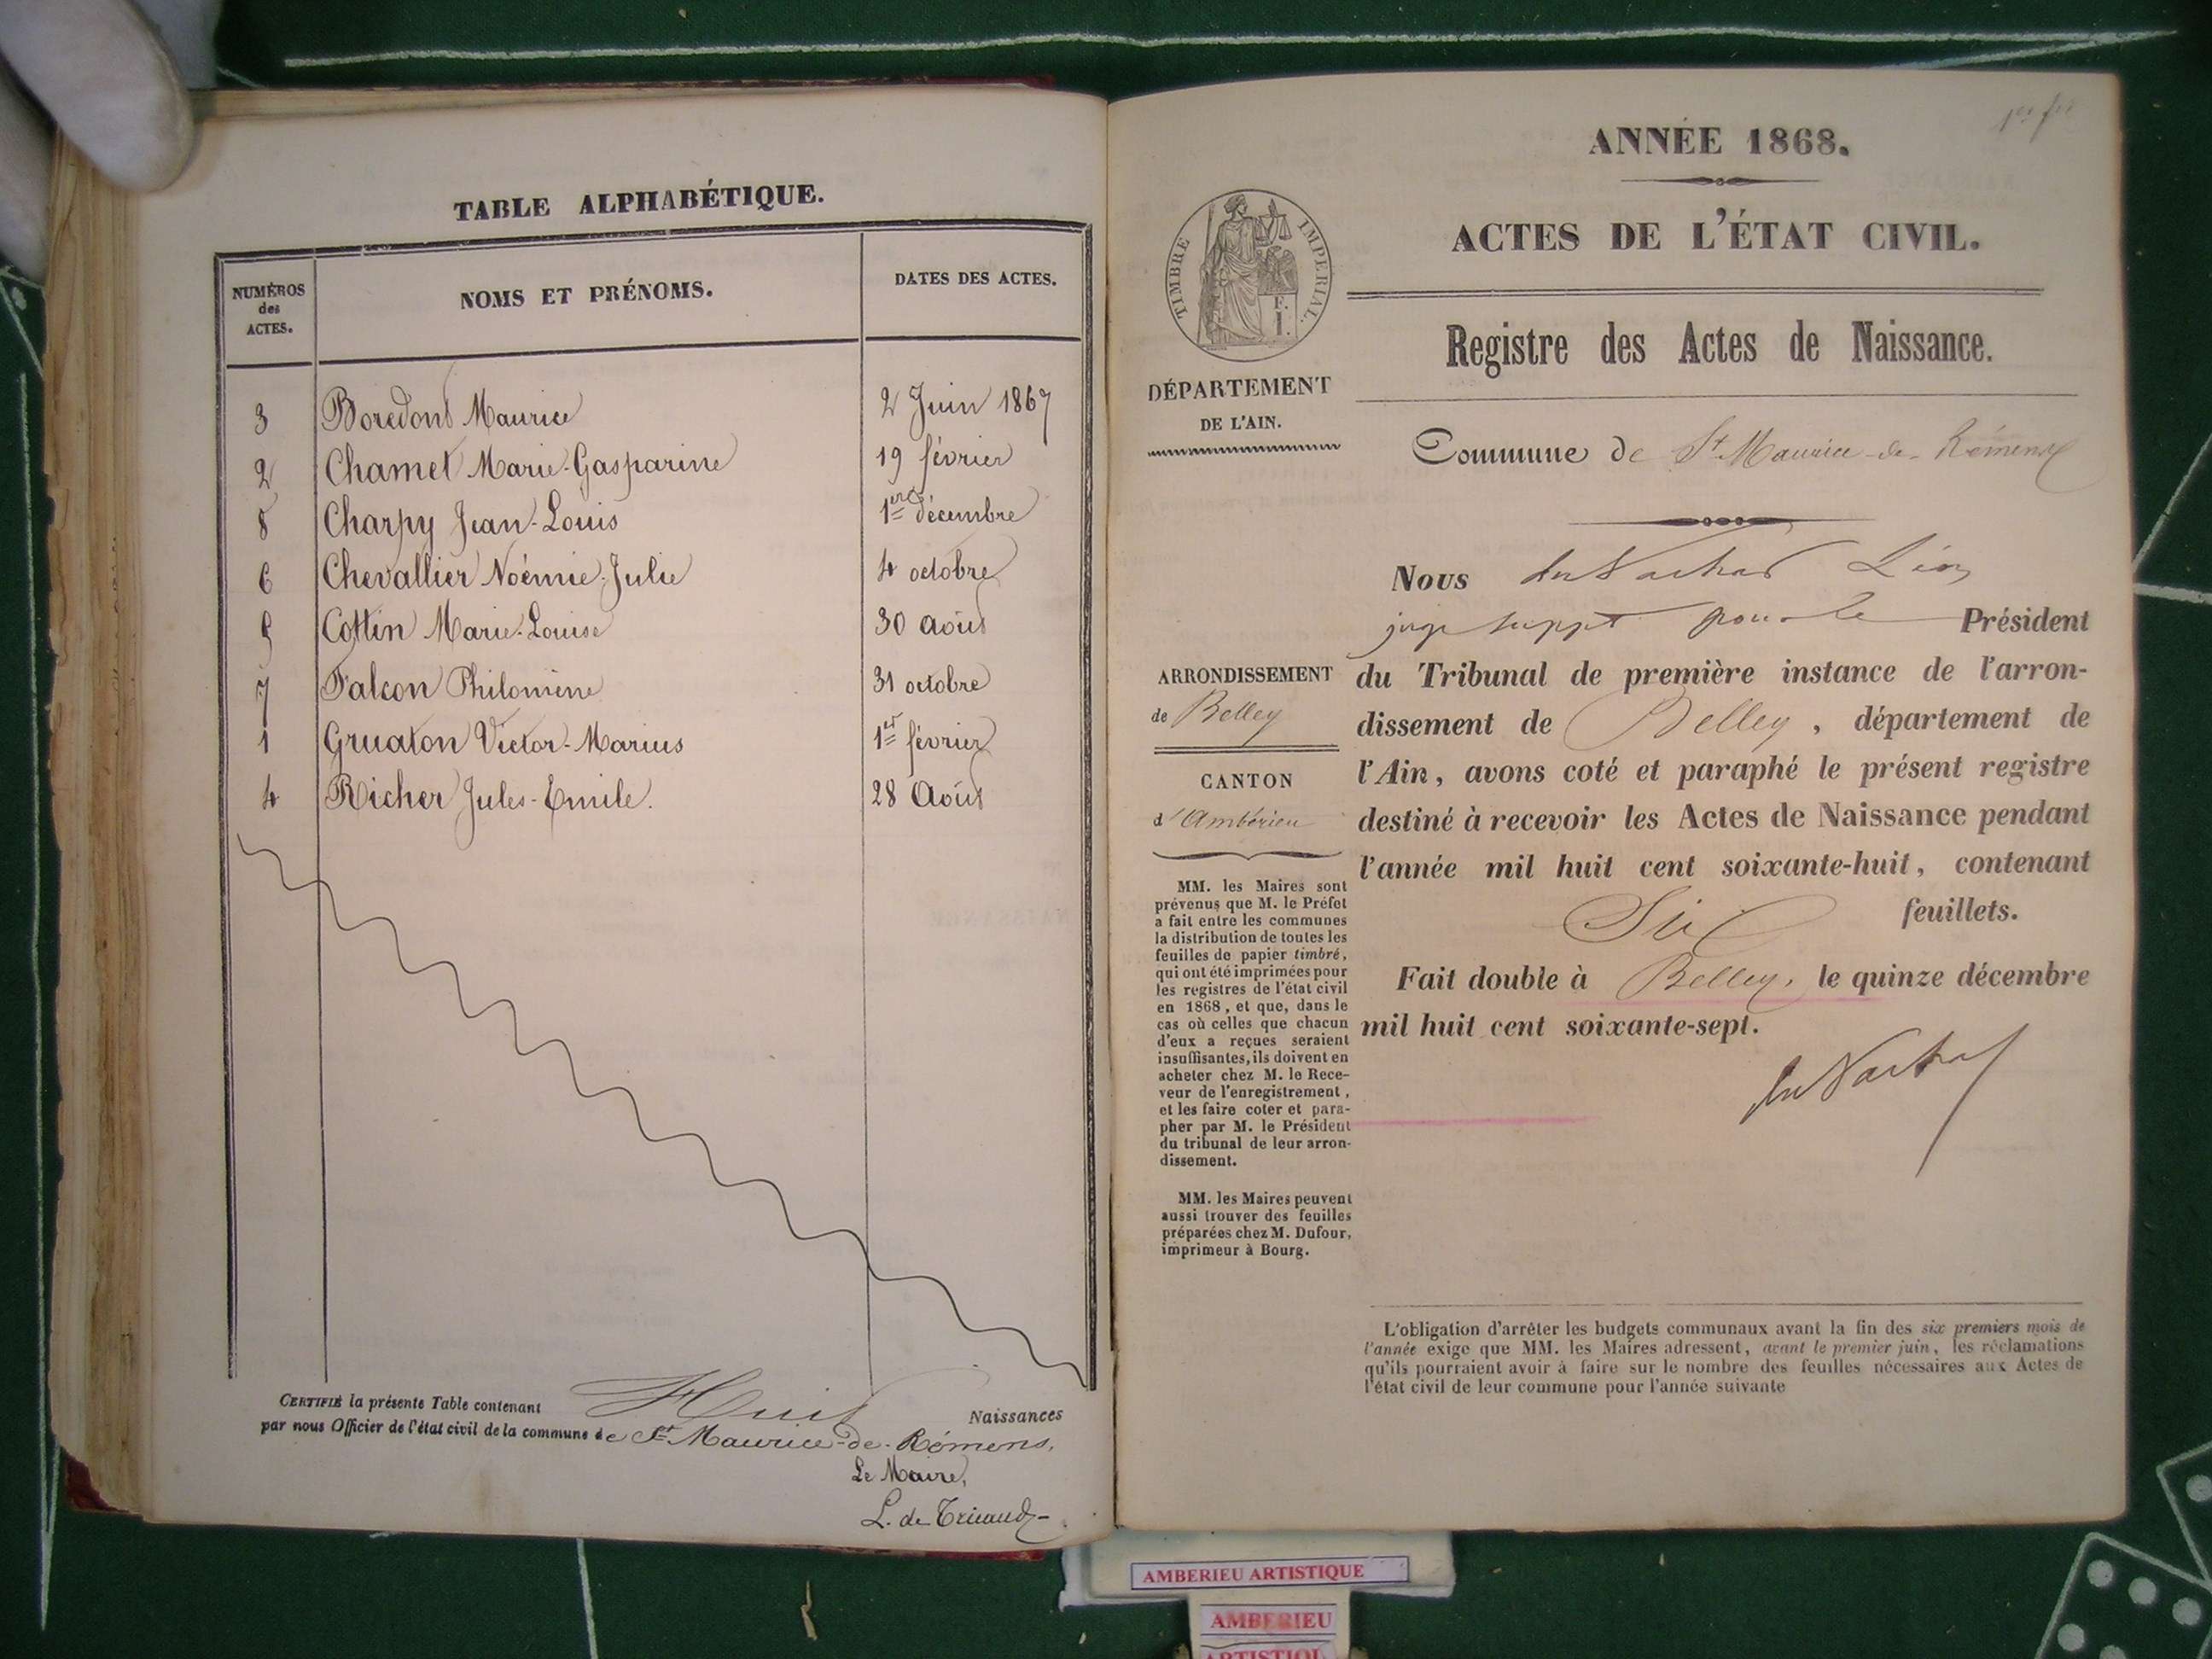 TABLE ALPHABÉTIQUE.
NUMÉROS
des
ACTES.
NOMS ET PRÉNOMS.
DATES DES ACTES.
3 Boredont Maurice 2 Juin 1867
2 Chamet Marie-Gasparine 19 février
8 Charpy Jean-Louis 1er décembre
6 Chevallier Noémie-Julie 4 octobre
5 Cottin Marie-Louise 30 Août
7 Falcon Philomène 31 octobre
1 Gruaton Victor-Marius 1er février
4 Richer Jules-Emile. 28 Août
CERTIFIÉ la présente Table contenant Huit Naissances
par nous Officier de l'état civil de la commune de St Maurice-de-Rémens,
Le Maire,
L. de Tricaud
ANNÉE 1868.
ACTES DE L'ÉTAT CIVIL.
TIMBRE IMPÉRIAL.
Registre des Actes de Naissance.
DÉPARTEMENT
DE L'AIN.
Commune de St Maurice-de-Rémens
Nous Léon
juge suppt pour le Président
du Tribunal de première instance de l'arron-
dissement de Belley, département de
l'Ain, avons coté et paraphé le présent registre
destiné à recevoir les Actes de Naissance pendant
l'année mil huit cent soixante-huit, contenant
Six feuillets.
Fait double à Belley, le quinze décembre
mil huit cent soixante-sept.
ARRONDISSEMENT
de Belley
CANTON
d'Ambérieu
MM. les Maires sont
prévenus que M. le Préfet
a fait entre les communes
la distribution de toutes les
feuilles de papier timbré,
qui ont été imprimées pour
les registres de l'état civil
en 1868, et que, dans le
cas où celles que chacun
d'eux a reçues seraient
insuffisantes, ils doivent en
acheter chez M. le Rece-
veur de l'enregistrement,
et les faire coter et para-
pher par M. le Président
du tribunal de leur arron-
dissement.
MM. les Maires peuvent
aussi trouver des feuilles
préparées chez M. Dufour,
imprimeur à Bourg.
L'obligation d'arrêter les budgets communaux avant la fin des six premiers mois de
l'année exige que MM. les Maires adressent, avant le premier juin, les réclamations
qu'ils pourraient avoir à faire sur le nombre des feuilles nécessaires aux Actes de
l'état civil de leur commune pour l'année suivante
AMBERIEU ARTISTIQUE
AMBERIEU